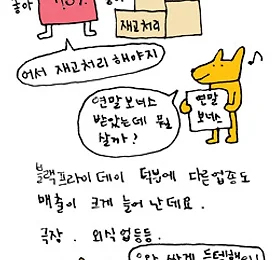 좋아
재고처리
어서 재고처리 해야지
연말 보너스
받았는데 뭐
살까?
연말
보너스
블랙프라이데이 덕분에 다른업종도
매출이 크게 늘어 난데요.
극장. 외식 업등등.